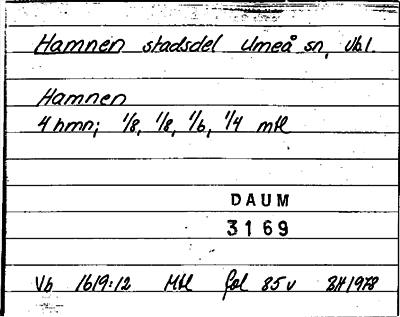 Hamnen stadsdel Umeå sn, Vbl.
Hamnen
4 hmn; 1/8, 1/8, 1/6, 1/4 mtl
DAUM
3169
Vb 1619:12 Mtl fol 85 v BH 1978